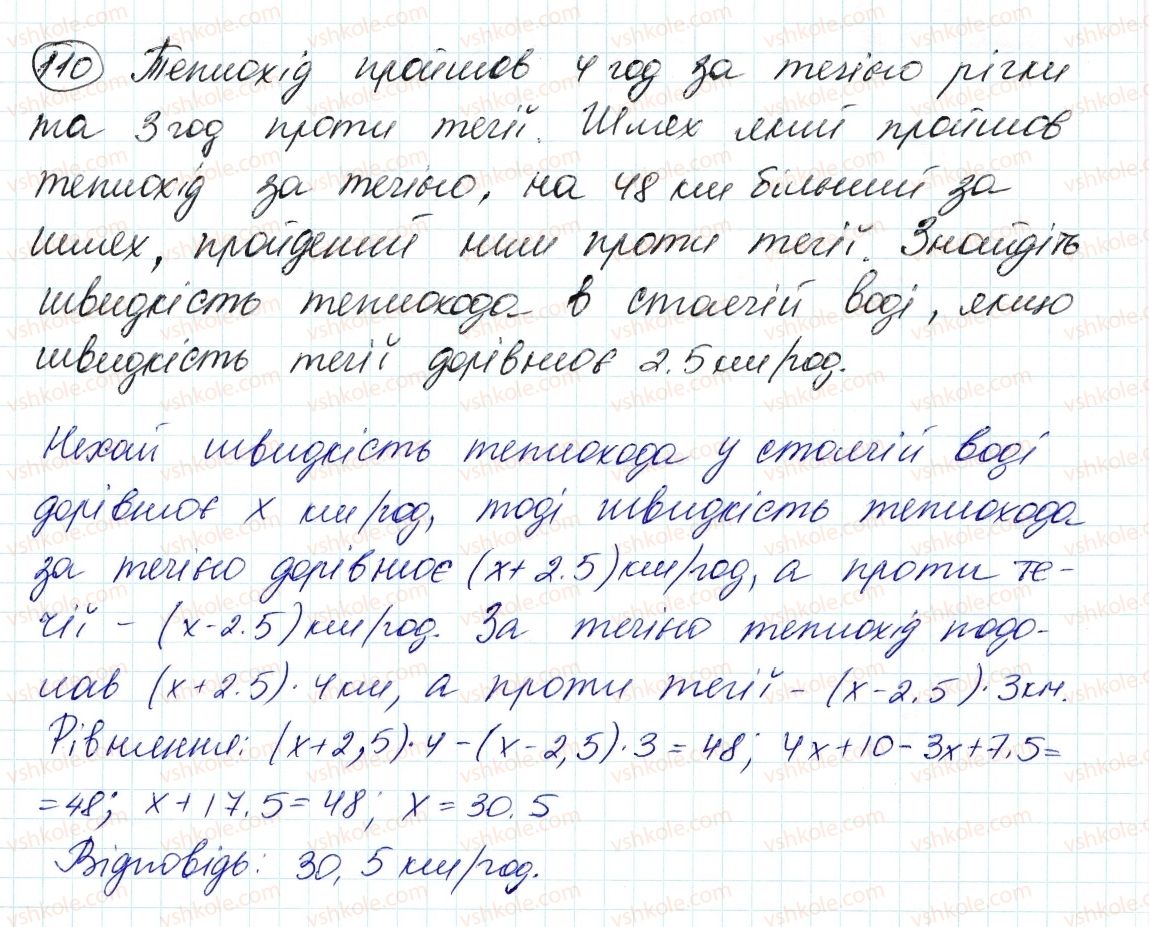 110 Теплохід пройшов 4 год за течією річки
та 3 год проти течії. Шлях який пройшов
теплохід за течією, на 48 км більший за
шлях, пройдений ним проти течії. Знайдіть
швидкість теплохода в стоячій воді, якщо
швидкість течії дорівнює 2.5 км/год.
Нехай швидкість теплохода у стоячій воді
дорівнює x км/год, тоді швидкість теплохода
за течією дорівнює (x+2.5) км/год, а проти те-
чії - (x-2.5) км/год. За течією теплохід подо-
лав (x+2.5)·4 км, а проти течії - (x-2.5)·3 км.
Рівняння: (x+2,5)·4-(x-2,5)·3=48; 4x+10-3x+7.5=
=48; x+17.5=48; x=30.5
Відповідь: 30,5 км/год.